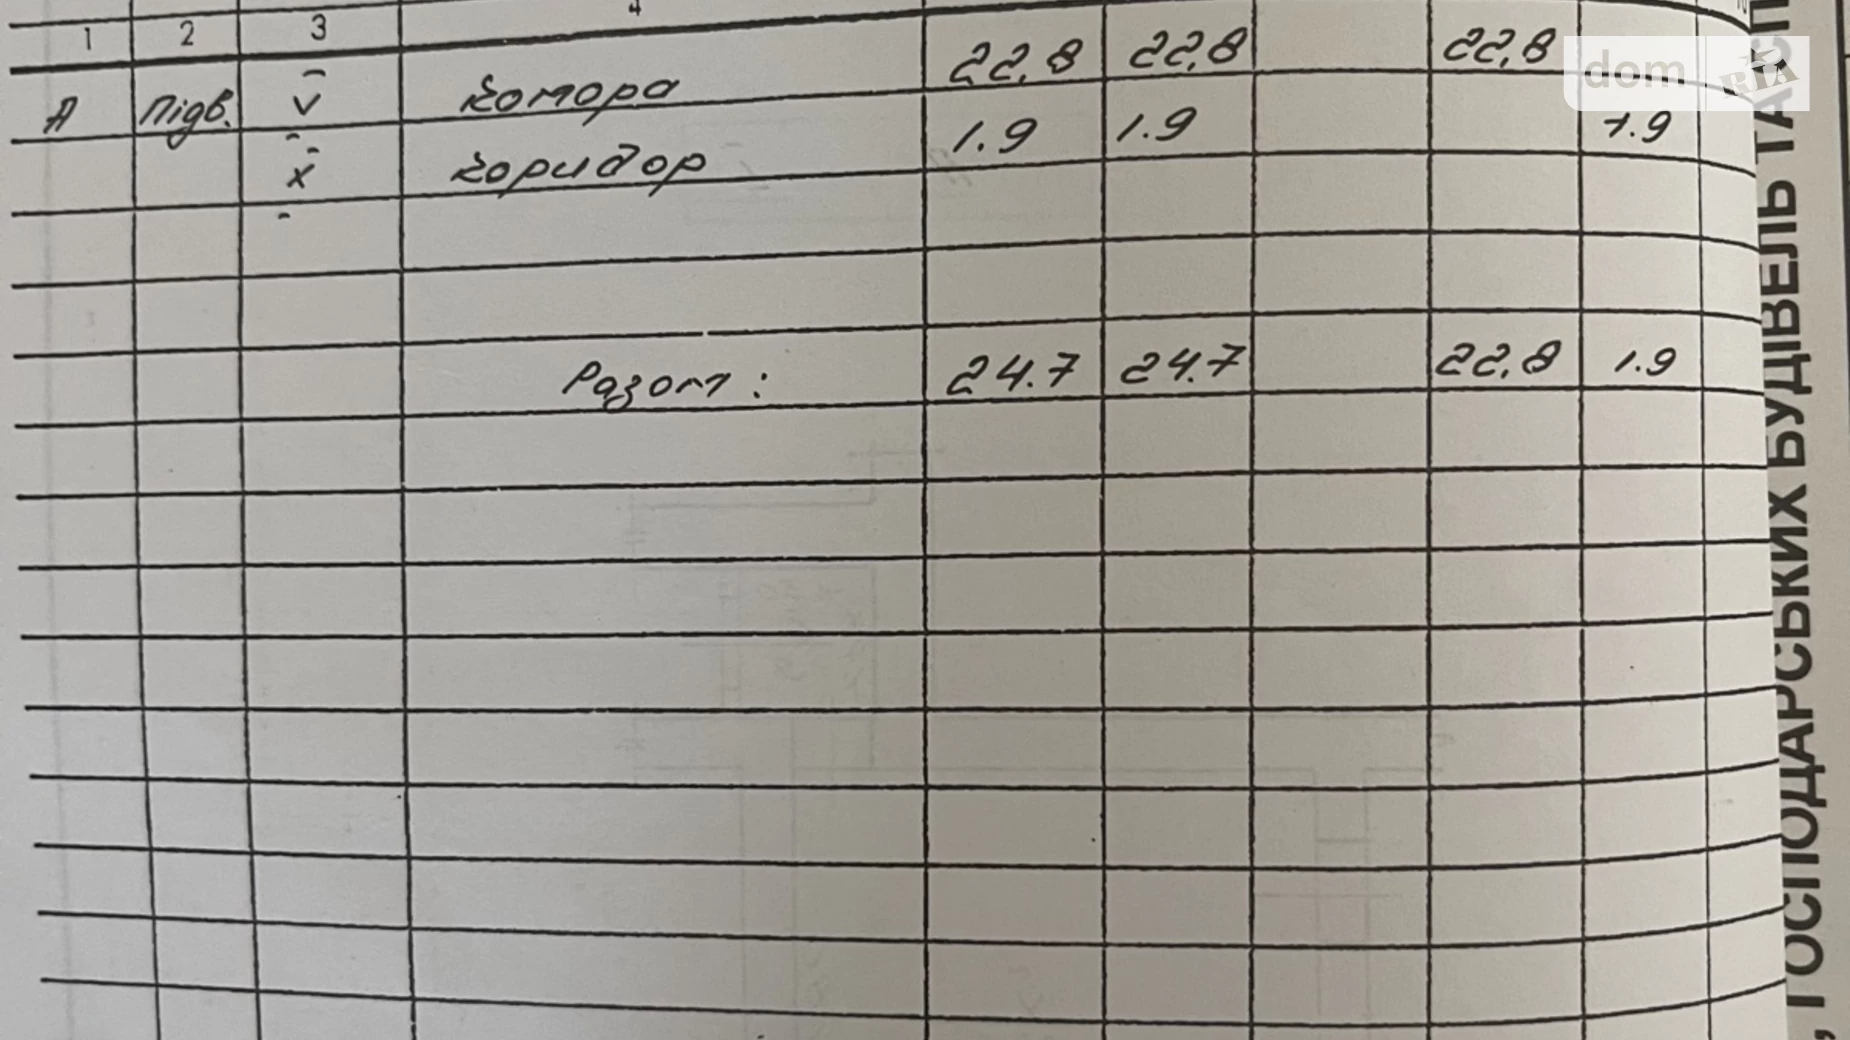 1 2 3 4
А Підв. V комора 22,8 22,8 22,8
X коридор 1.9 1.9 1.9
Разом: 24.7 24.7 22,8 1.9
ГОСПОДАРСЬКИХ БУДІВЕЛЬ ТА
dom RIA